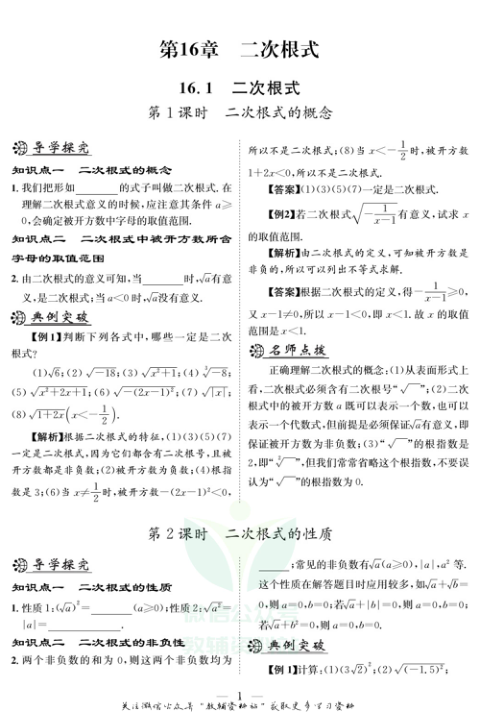 第16章 二次根式
16.1 二次根式
第1课时 二次根式的概念
导学探究
知识点一 二次根式的概念
1. 我们把形如______的式子叫做二次根式. 在
理解二次根式意义的时候,应注意其条件 a≥
0,会确定被开方数中字母的取值范围.
知识点二 二次根式中被开方数所含
字母的取值范围
2. 由二次根式的意义可知,当______时,√a有意
义,是二次根式;当 a<0 时,√a没有意义.
典例突破
【例1】判断下列各式中,哪些一定是二次
根式?
(1)√6;(2)√-18;(3)√x²+1;(4)∛-8;
(5)√x²+2x+1;(6)√-(2x-1)²;(7)√|x|;
(8)√1+2x(x<-1/2).
【解析】根据二次根式的特征,(1)(3)(5)(7)
一定是二次根式,因为它们都含有二次根号,且被
开方数都是非负数;(2)被开方数为负数;(4)根指
数是3;(6)当 x≠1/2时,被开方数-(2x-1)²<0,
所以不是二次根式;(8)当 x<-1/2时,被开方数
1+2x<0,所以不是二次根式.
【答案】(1)(3)(5)(7)一定是二次根式.
【例2】若二次根式√-1/(x-1)有意义,试求 x
的取值范围.
【解析】由二次根式的定义,可知被开方数是
非负的,所以可以列出不等式求解.
【答案】根据二次根式的定义,得-1/(x-1)≥0,
又 x-1≠0,所以 x-1<0,即 x<1.故 x 的取值
范围是 x<1.
名师点拨
正确理解二次根式的概念:(1)从表面形式上
看,二次根式必须含有二次根号“√”;(2)二次
根式中的被开方数 a 既可以表示一个数,也可以
表示一个代数式,但前提是必须保证√a有意义,即
保证被开方数为非负数;(3)“√”的根指数是
2,即“²√”,但我们常常省略这个根指数,不要误
认为“√”的根指数为0.
第2课时 二次根式的性质
导学探究
知识点一 二次根式的性质
1. 性质1:(√a)²=______(a≥0);性质2:√a²=
|a|=____________.
知识点二 二次根式的非负性
2. 两个非负数的和为0,则这两个非负数均为
______;常见的非负数有√a(a≥0),|a|,a² 等.
这个性质在解答题目时应用较多,如√a+√b=
0,则a=0,b=0;若√a+|b|=0,则a=0,b=0;
若√a+b²=0,则a=0,b=0.
典例突破
【例1】计算:(1)(3√2)²;(2)√(-1.5)²;
— 1 —
关注微信公众号“教辅资料站”获取更多学习资料